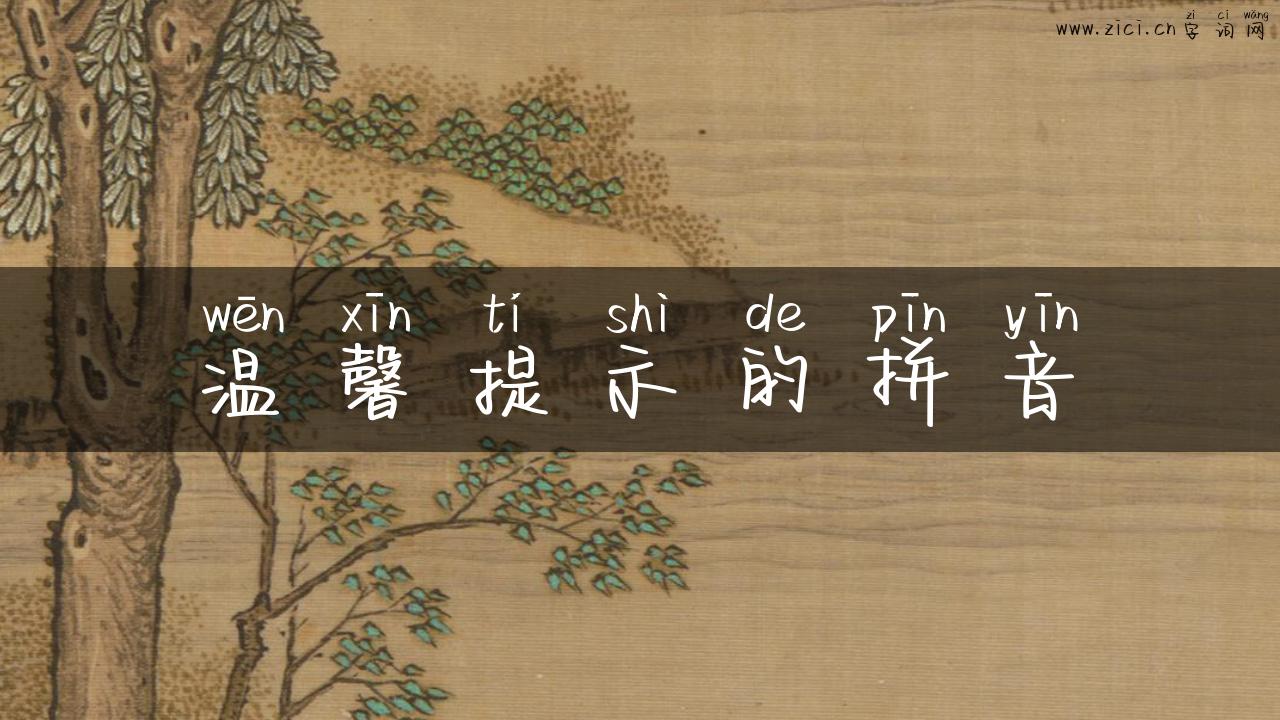 zì cí wǎng
www.zici.cn 字词网
wēn xīn tí shì de pīn yīn
温馨提示的拼音